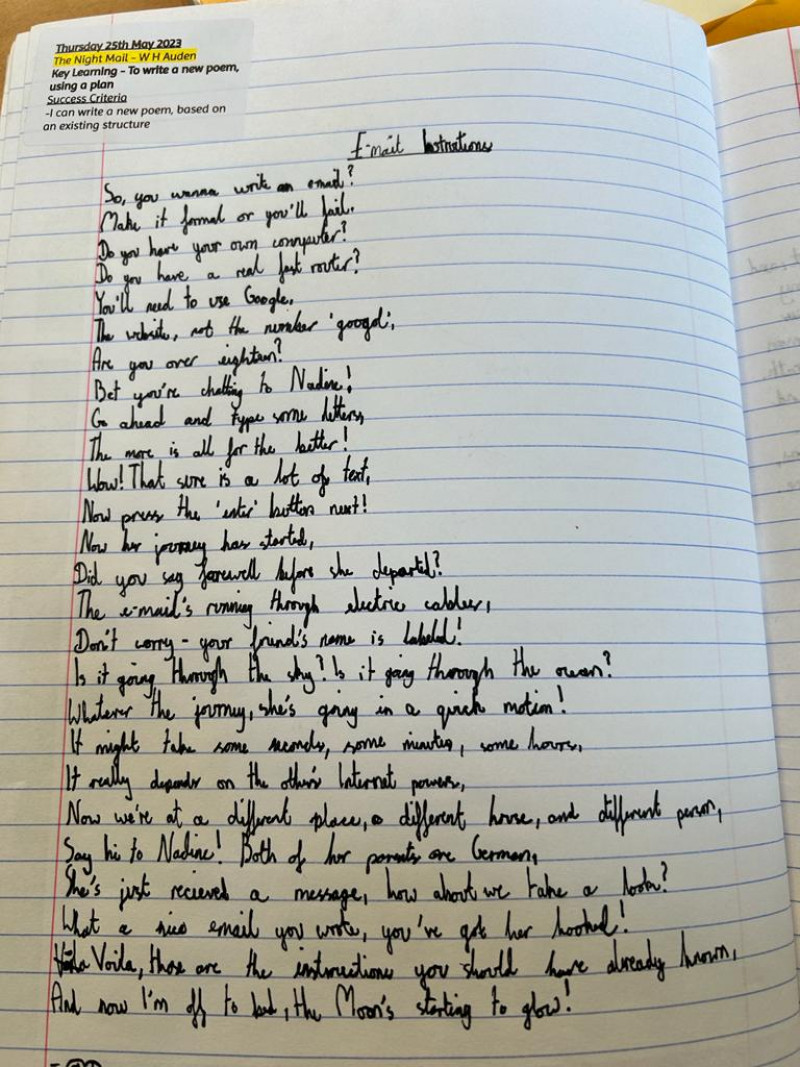 Thursday 25th May 2023
The Night Mail - W H Auden
Key Learning - To write a new poem,
using a plan
Success Criteria
-I can write a new poem, based on
an existing structure
E-mail Instructions
So, you wanna write an email?
Make it formal or you'll fail.
Do you have your own computer?
Do you have a real fast router?
You'll need to use Google,
The website, not the number 'googol',
Are you over eighteen?
Bet you're chatting to Nadine!
Go ahead and type some letters,
The more is all for the better!
Wow! That sure is a lot of text,
Now press the 'enter' button next!
Now her journey has started,
Did you say farewell before she departed?
The e-mail's running through electric cables,
Don't worry - your friend's name is labeled!
Is it going through the sky? Is it going through the ocean?
Whatever the journey, she's going in a quick motion!
It might take some seconds, some minutes, some hours,
It really depends on the other's Internet powers,
Now we're at a different place, a different house, and different person,
Say hi to Nadine! Both of her parents are German,
She's just recieved a message, how about we take a look?
What a nice email you wrote, you've got her hooked!
Voila, those are the instructions you should have already known,
And now I'm off to bed, the Moon's starting to glow!